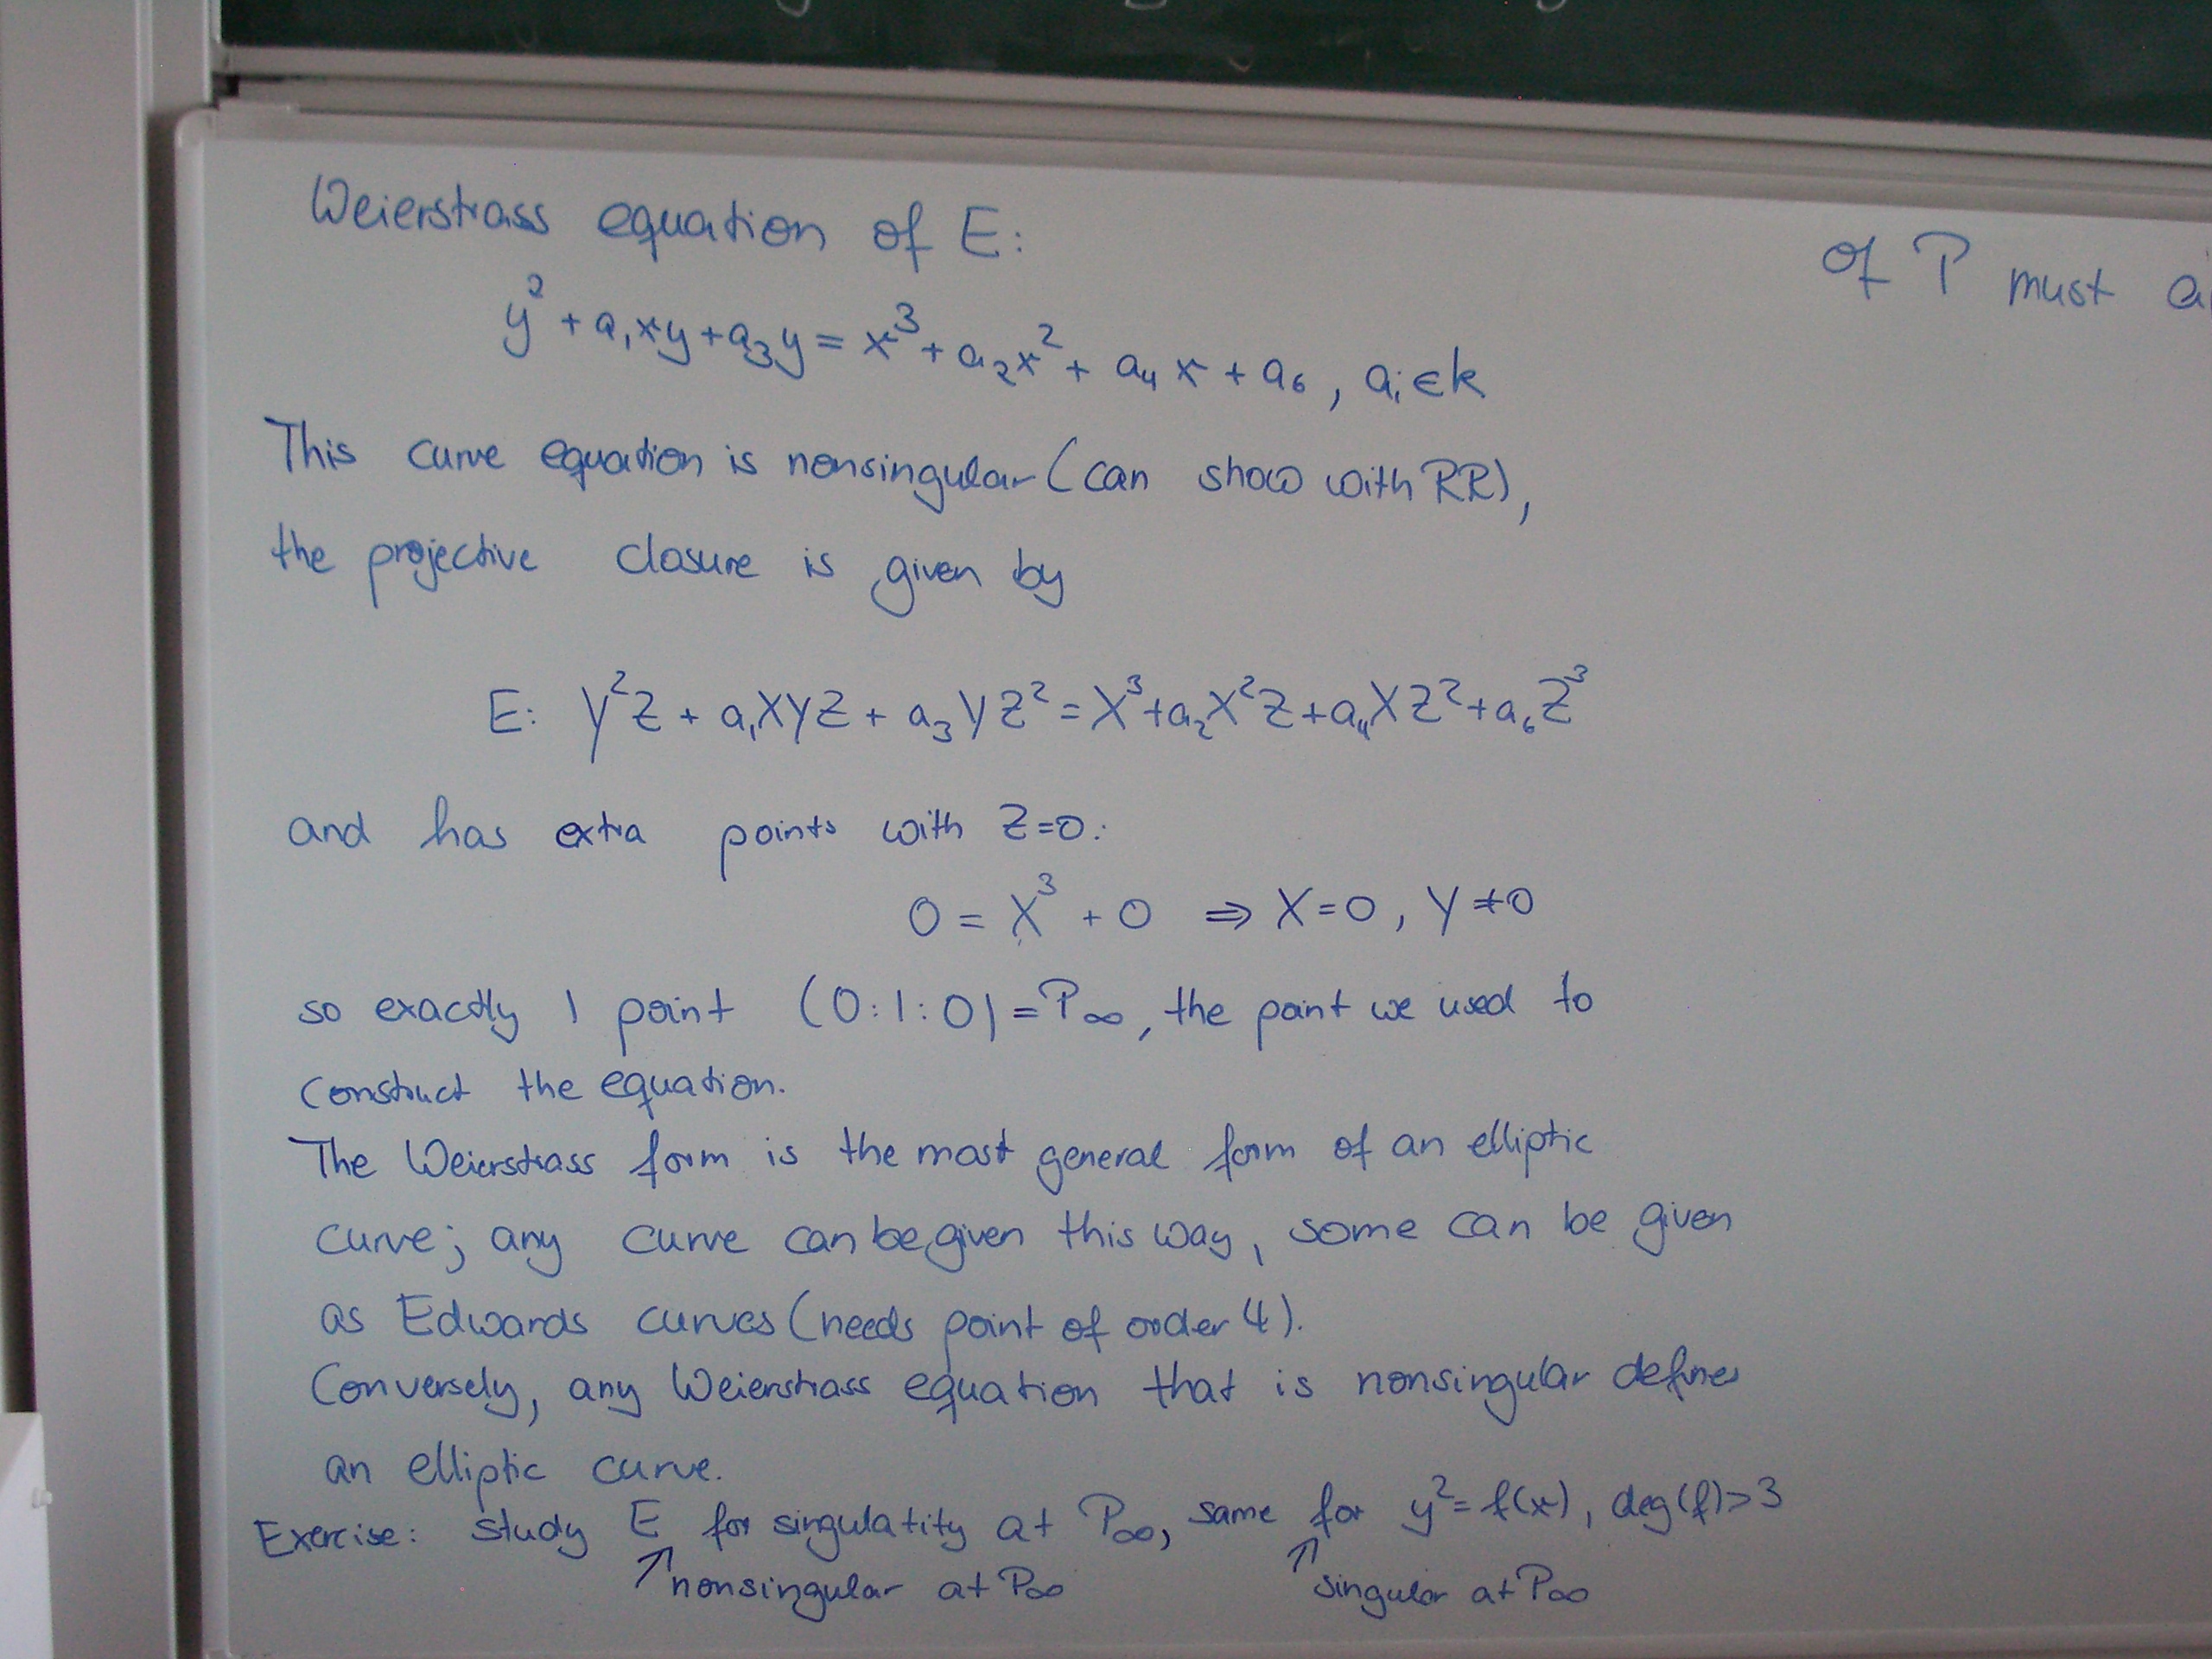 Weierstrass equation of E:
y² + a₁xy + a₃y = x³ + a₂x² + a₄x + a₆, aᵢ∈k
This curve equation is nonsingular (can show with RR),
the projective closure is given by
E: Y²Z + a₁XYZ + a₃YZ² = X³ + a₂X²Z + a₄XZ² + a₆Z³
and has extra points with Z=0:
0 = X³ + 0 ⇒ X=0, Y≠0
so exactly 1 point (0:1:0) = P∞, the point we used to
construct the equation.
The Weierstrass form is the most general form of an elliptic
curve; any curve can be given this way, some can be given
as Edwards curves (needs point of order 4).
Conversely, any Weierstrass equation that is nonsingular defines
an elliptic curve.
Exercise: study E for singulatity at P∞, same for y² = f(x), deg(f)>3
↗ nonsingular at P∞ ↗ singular at P∞
of P must